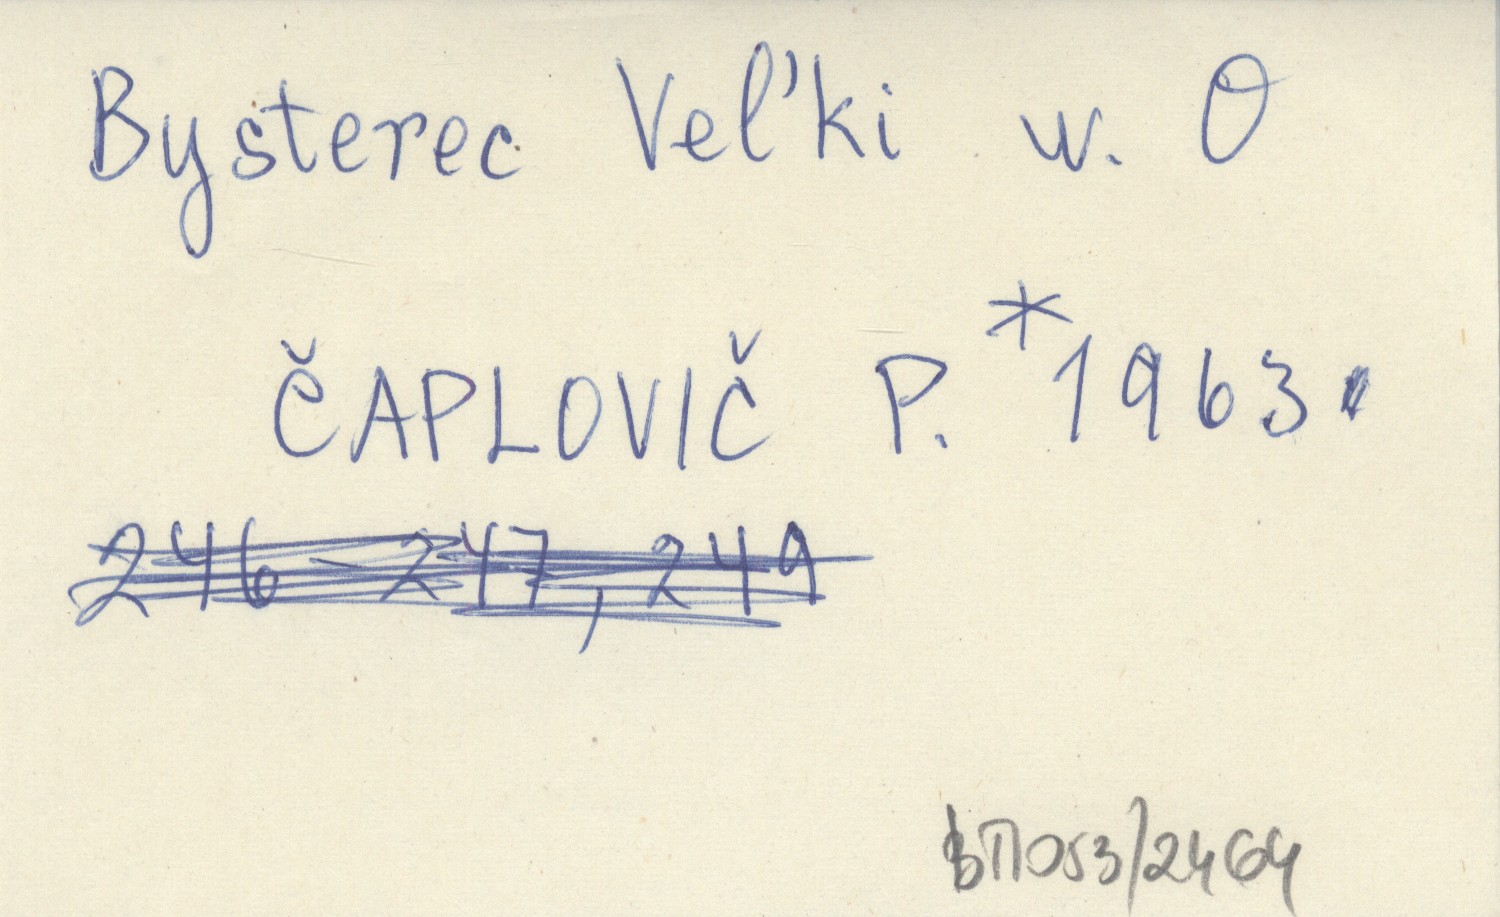 Bysterec Veľki w. O
ČAPLOVIČ P. *1963.
246-247, 249
BП053/2464